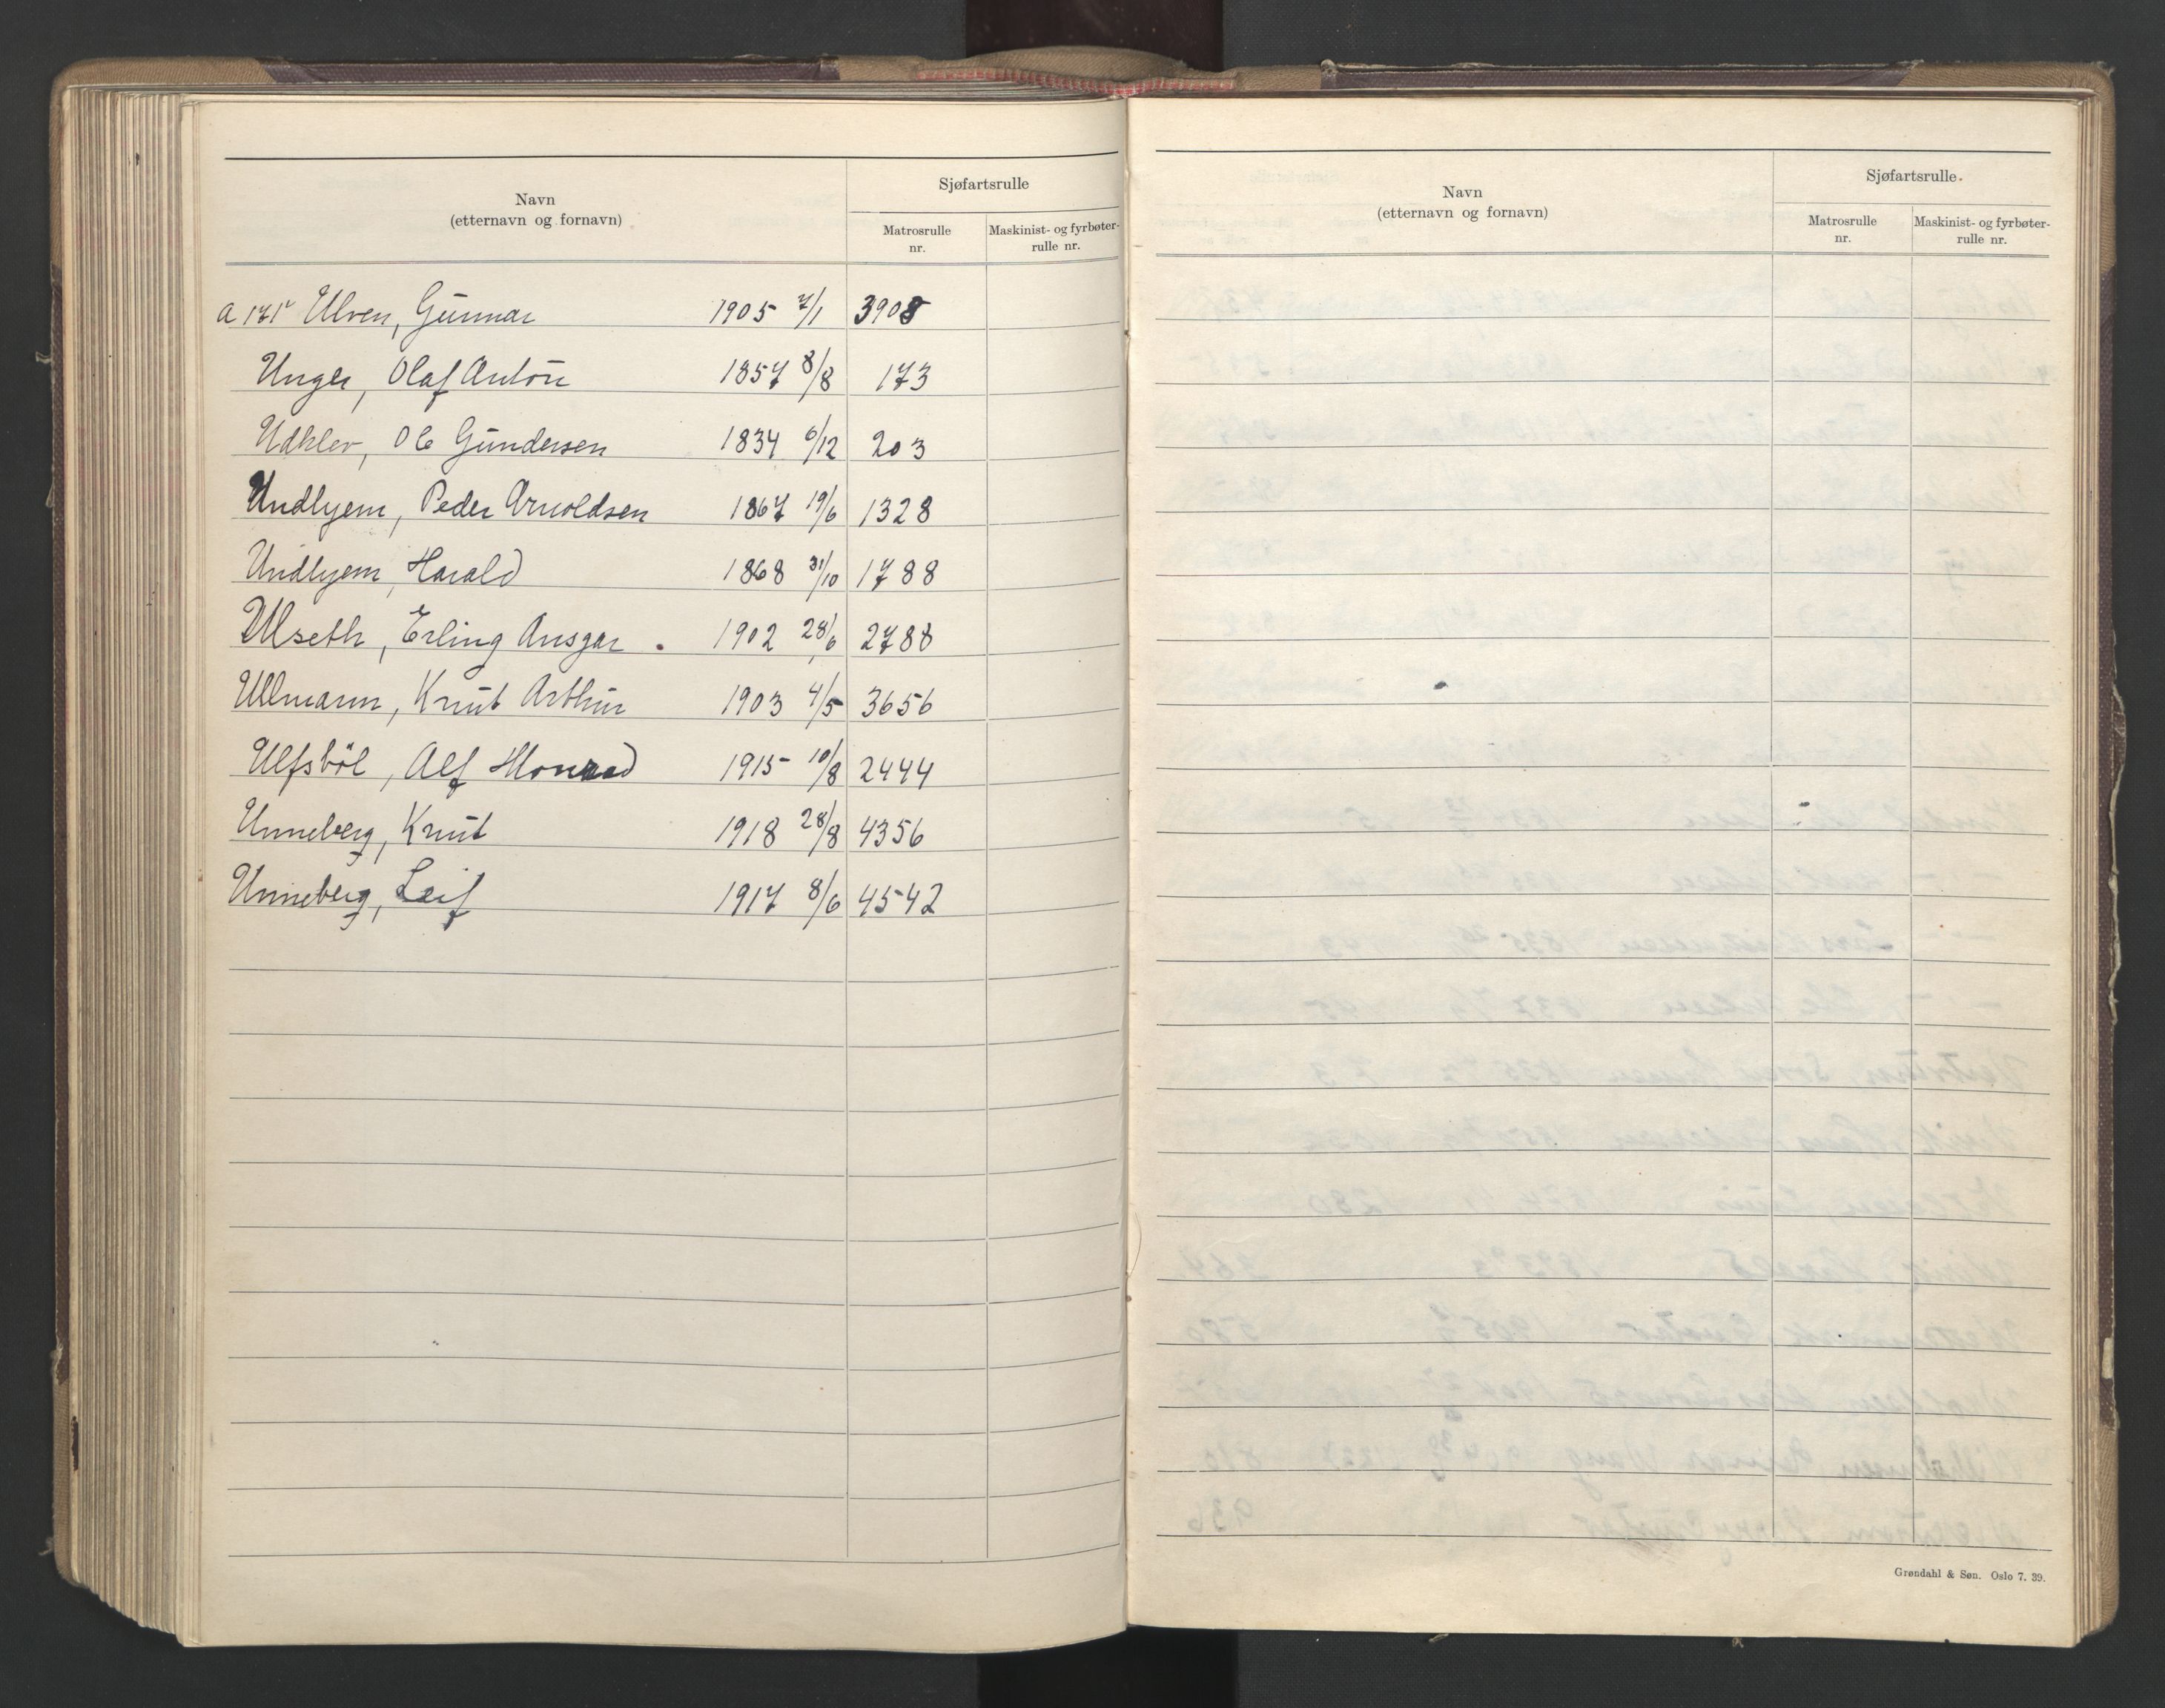 Navn
(etternavn og fornavn)
Sjøfartsrulle
Matrosrulle nr.
Maskinist- og fyrbøter-rulle nr.
Ulven, Gunnar 1905 7/1 3908
Unger, Olaf Anton 1857 8/8 173
Udklev, Ole Gundersen 1834 6/12 203
Undlyem, Peder Arnoldsen 1867 19/6 1328
Undlyem, Harald 1868 31/10 1788
Ulseth, Erling Ansgar. 1902 28/6 2788
Ullmann, Knut Arthur 1903 4/5 3656
Ulfsböl, Alf Monrad 1915 10/8 2444
Unneberg, Knut 1918 28/8 4356
Unneberg, Leif 1917 8/6 4542
Navn
(etternavn og fornavn)
Sjøfartsrulle.
Matrosrulle nr.
Maskinist- og fyrbøter-rulle nr.
Grøndahl & Søn. Oslo 7. 39.